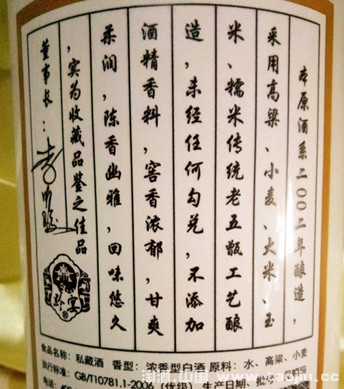 本原酒系二00二年酿造，
采用高粱、小麦、大米、玉
米、糯米传统老五甑工艺酿
造，未经任何勾兑，不添加
酒精香料，窖香浓郁，甘爽
柔润，陈香幽雅，回味悠久
，实为收藏品鉴之佳品
董事长：
食品名称：私藏酒 香型：浓香型白酒 原料：水、高粱、小麦
执行标准：GB/T10781.1-2006（优级）生产日期、批